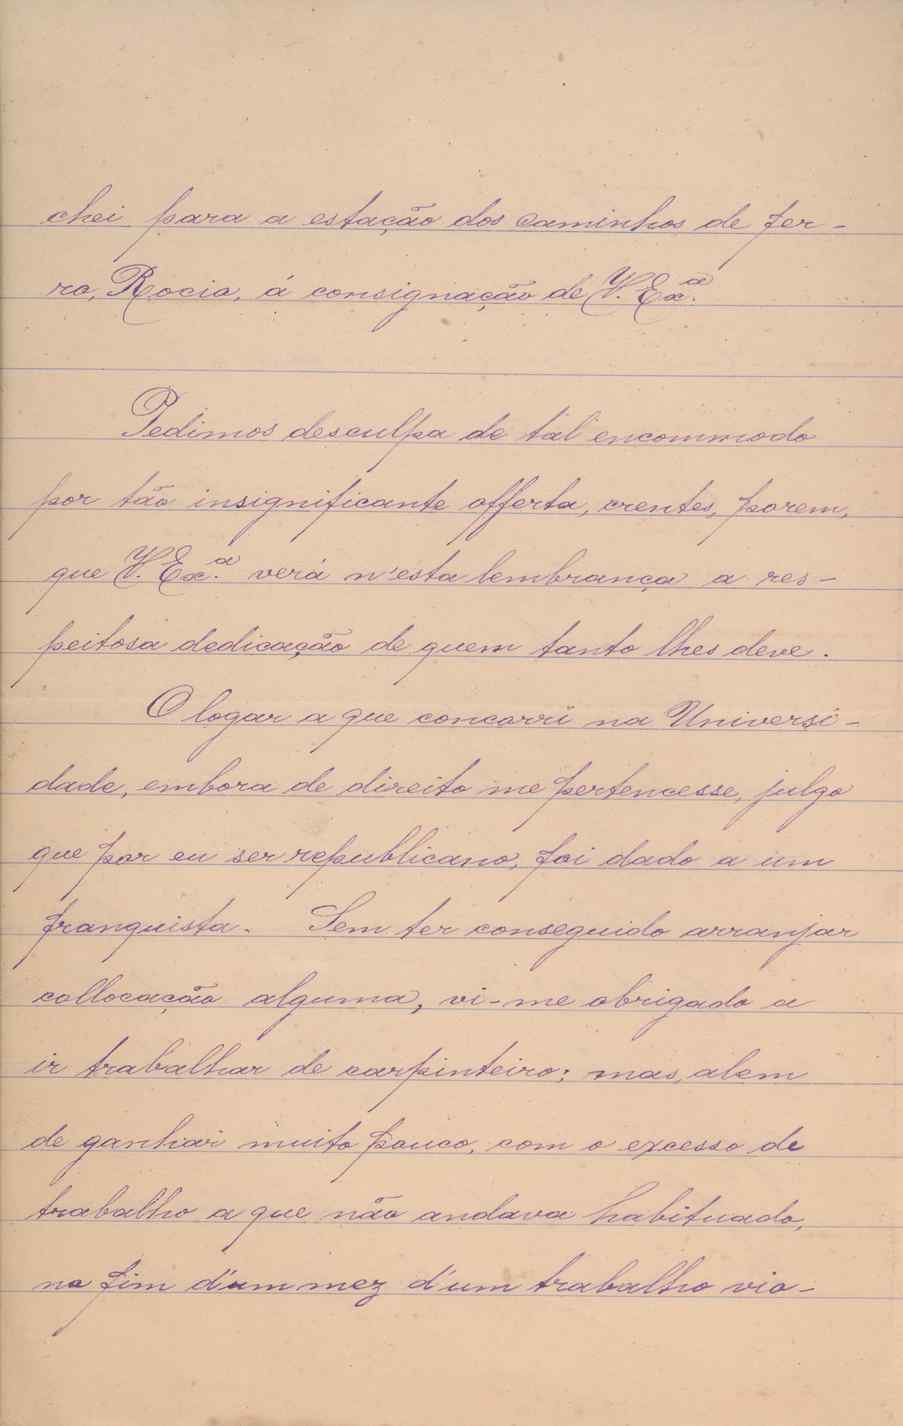 chei para a estação dos caminhos de fer-
ro, Rocio, á consignação de V. Ex.ª
Pedimos desculpa de tal encommodo
por tão insignificante offerta, crentes, porem,
que V. Ex.ª verá n'esta lembrança a res-
peitosa dedicação de quem tanto lhes deve.
O logar a que concorri na Universi-
dade, embora de direito me pertencesse, julgo
que por eu ser republicano, foi dado a um
franquista. Sem ter conseguido arranjar
collocação alguma, vi-me obrigado a
ir trabalhar de carpinteiro; mas, alem
de ganhar muito pouco, com o excesso de
trabalho a que não andava habituado,
no fim d'um mez d'um trabalho vio-